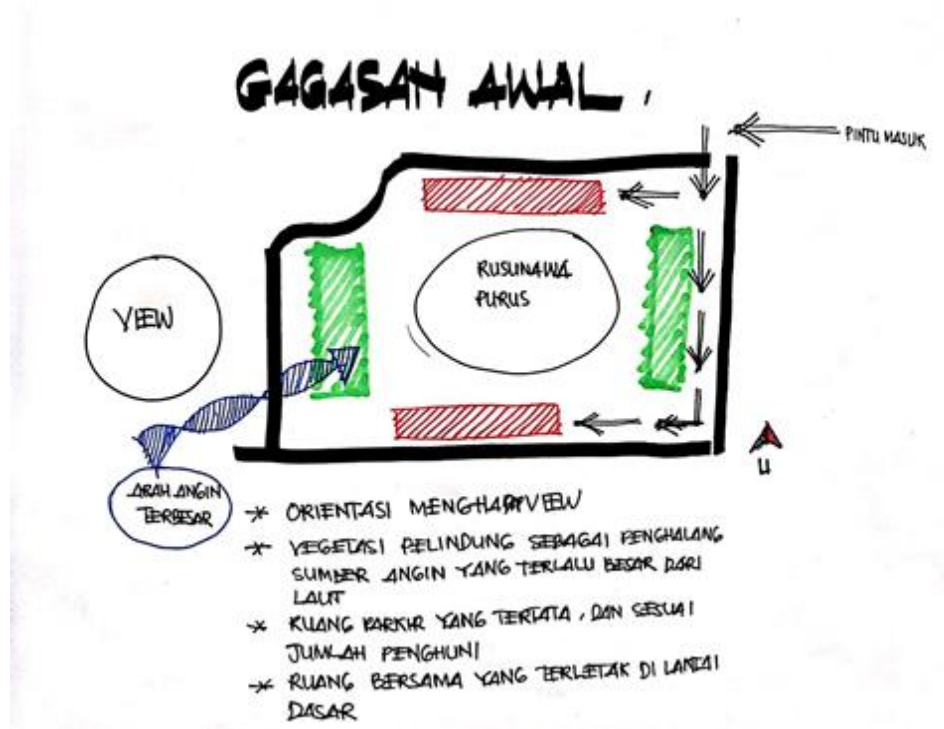 GAGASAN AWAL.
PINTU MASUK
RUSUNAWA
PURUS
VIEW
U
ARAH ANGIN
TERBESAR
* ORIENTASI MENGHADAP VIEW
* VEGETASI PELINDUNG SEBAGAI PENGHALANG
SUMBER ANGIN YANG TERLALU BESAR DARI
LAUT
* RUANG PARKIR YANG TERTATA, DAN SESUAI
JUMLAH PENGHUNI
* RUANG BERSAMA YANG TERLETAK DI LANTAI
DASAR